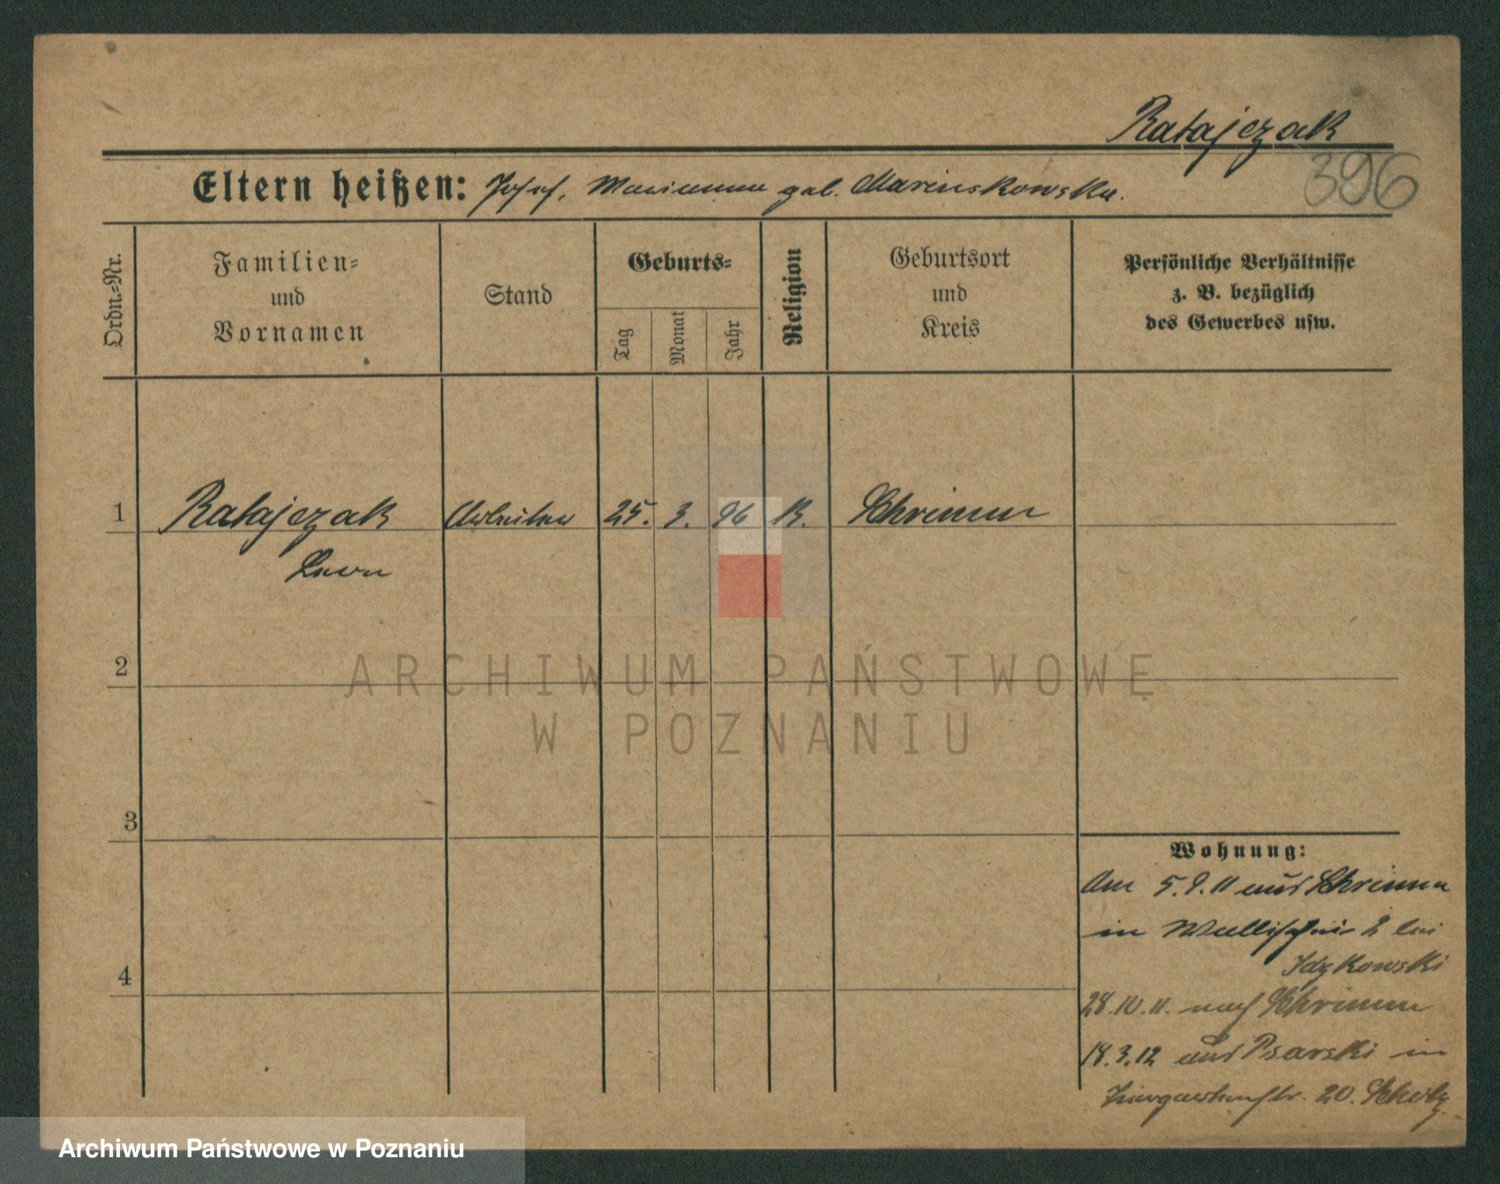 Ratajczak
396
Eltern heißen: Josef, Marianna geb. Marcinskowska.
Ordn.-Nr.
Familien-
und
Vornamen
Stand
Geburts-
Tag
Monat
Jahr
Religion
Geburtsort
und
Kreis
Persönliche Verhältnisse
z. B. bezüglich
des Gewerbes usw.
1 Ratajczak Arbeiter 25. 3. 96 K. Schrimm
Leon
2
3
4
Wohnung:
Am 5.9.11 aus Schrimm
in Wallischei 2 bei
Idzkowski
28.10.11. nach Schrimm
18.3.12 aus Psarski in
20. Scholz
ARCHIWUM PAŃSTWOWE
W POZNANIU
Archiwum Państwowe w Poznaniu